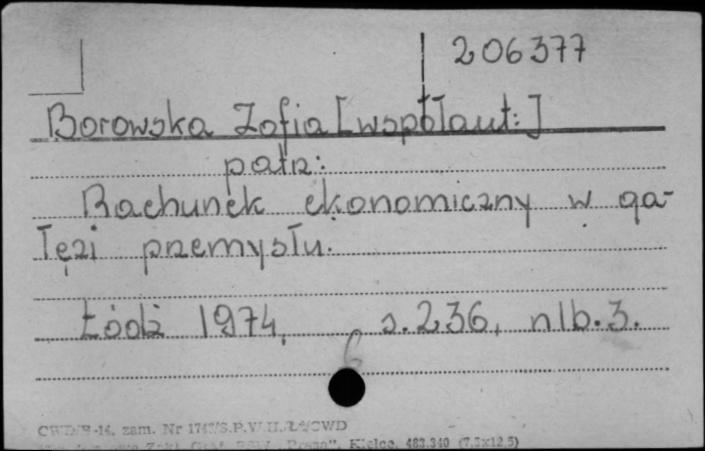 206377
Borowska Zofia [współaut:]
patrz:
Rachunek ekonomiczny w ga-
łęzi przemysłu.
Łódź 1974. s. 236, nlb. 3.
6
-14, zam. Nr
Kielce, 483.340 (7,5x12,5)